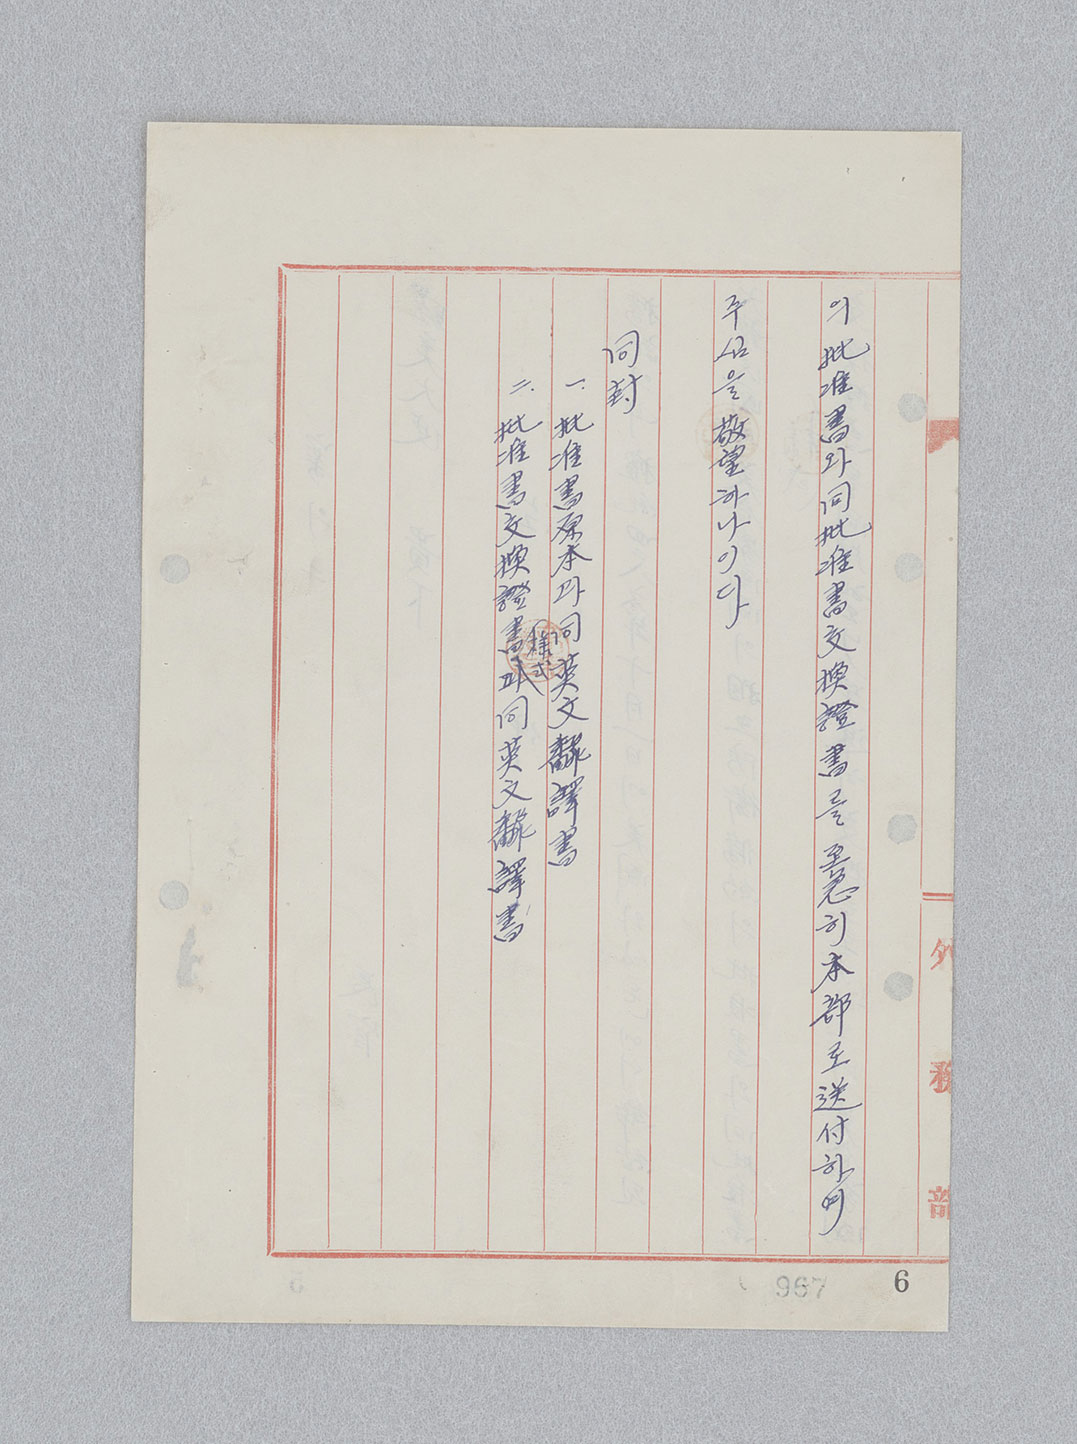 의 批准書와 同批准書交換證書를 至急히 本部로 送付하여
주심을 敬望하나이다
同封
一. 批准書原本과 同英文飜譯書
二. 批准書交換證書(樣式)과 同英文飜譯書
外務部
967
6